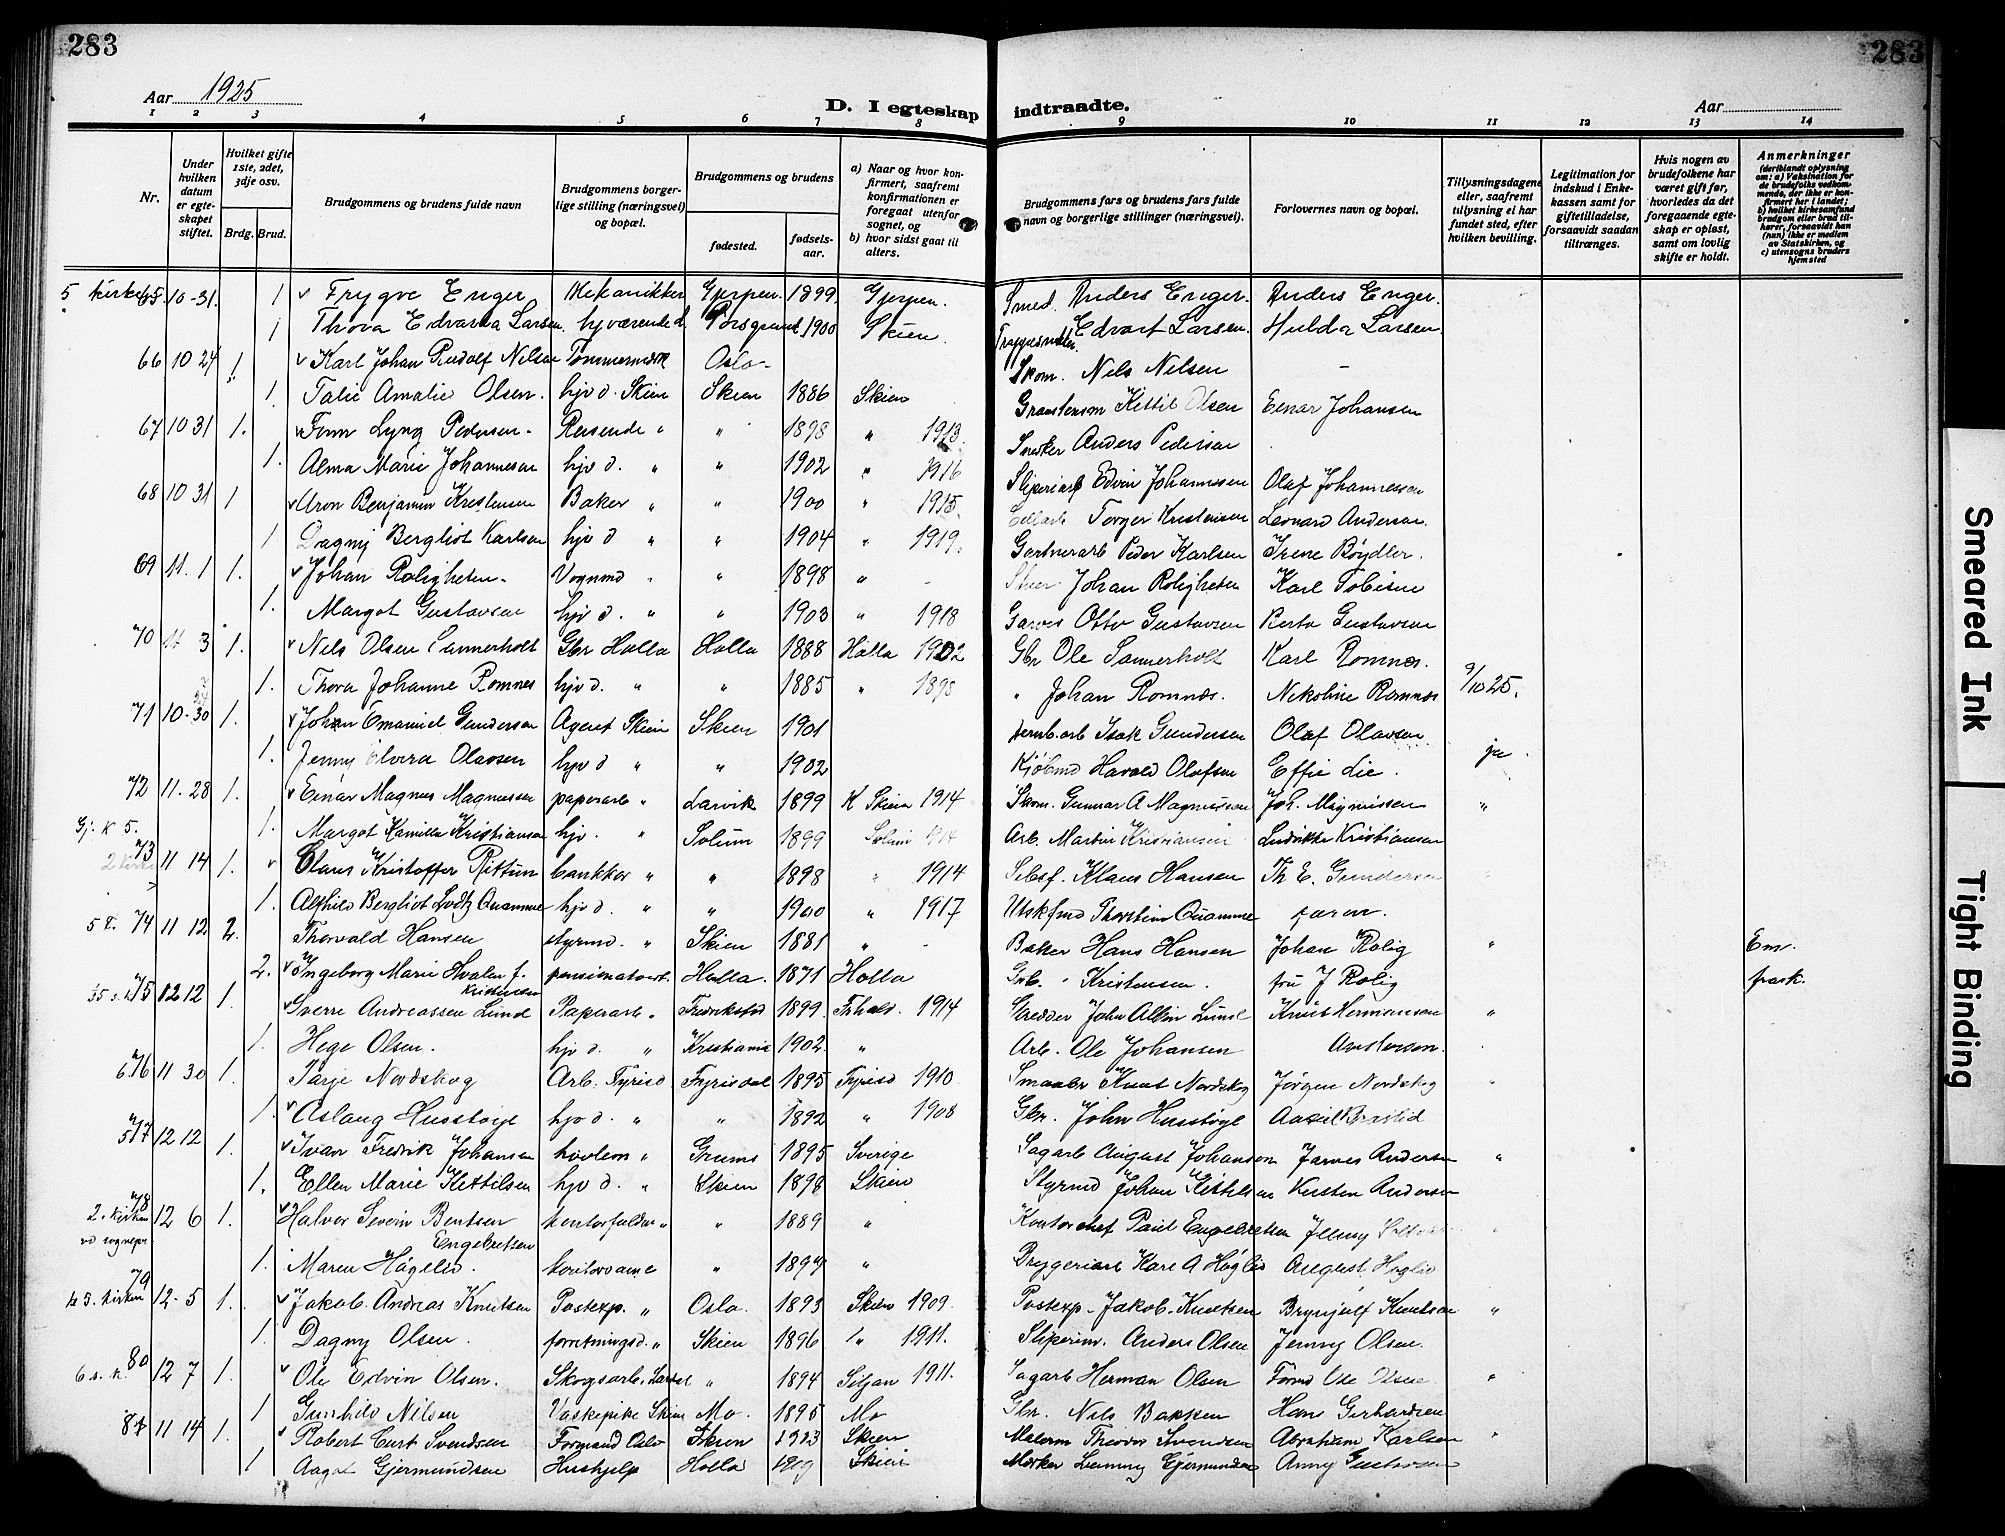 283
283
Aar 1925
D. I egteskap indtraadte.
Aar
1 2 3 4 5 6 7 8 9 10 11 12 13 14
Nr.
Under hvilken datum er egteskapet stiftet.
Hvilket gifte 1ste, 2det, 3dje osv.
Brdg. Brud.
Brudgommens og brudens fulde navn
Brudgommens borgerlige stilling (næringsvei) og bopæl.
Brudgommens og brudens
fødested.
fødselsaar.
a) Naar og hvor konfirmert, saafremt konfirmationen er foregaat utenfor sognet, og
b) hvor sidst gaat til alters.
Brudgommens fars og brudens fars fulde navn og borgerlige stillinger (næringsvei).
Forlovernes navn og bopæl.
Tillysningsdagene eller, saafremt tillysning ei har fundet sted, efter hvilken bevilling.
Legitimation for indskud i Enkekassen samt for giftetilladelse, forsaavidt saadan tiltrænges.
Hvis nogen av brudefolkene har været gift før, hvorledes da det foregaaende egteskap er opløst, samt om lovlig skifte er holdt.
Anmerkninger (deriblandt oplysning om: a) Vaksination for de brudefolks vedkommende, der ikke er konfirmert her i landet; b) hvilket kirkesamfund brudgom eller brud tilhører, forsaavidt han (hun) ikke er medlem av Statskirken, og c) utensogns bruders hjemsted
65 10-31. 1 Trygve Enger Mekanikker Gjerpen 1899 Gjerpen. Smed. Anders Enger. Anders Enger.
1 Thova Edvarda Larsen hjværende d Porsgrund 1900 Skien Edvart Larsen. Hulda Larsen
66 10 24 1 Karl Johan Rudolf Nilsen Oslo - Skom. Nils Nilsen -
1. Talie Amalie Olsen. hjv d. Skien Skien 1886 Skien Kittil Olsen Einar Johansen
67 10 31 1. Lyng Pedersen - Reisende " " 1898 " 1913. Snedker Anders Pedersen
1. Alma Marie Johannesen hjv d. " " 1902 " 1916 Sliperiarb Edvin Johannessen Olaf Johannessen
68 10 31 1 Aron Benjamin Kristensen Baker " " 1900 " 1915. Torger Kristensen Leonard Andersen.
1 Dagny Bergliot Karlsen hjv d " " 1904 " 1919. Gartnerarb Peder Karlsen Irene Bøydler.
69 11. 1 1. Johan Roligheten - Vognmd " " 1898 " - Johan Roligheten Karl Tobisen
1. Margot Gustavsen hjv d. " " 1903 " 1918 Garver Otto Gustavsen Berta Gustavsen
70 11 3 1. Nils Olsen Sannerholt Gbr Holla Holla 1888 Holla 1902 Gbr Ole Sannerholt Karl Romnes.
1. Thora Johanne Romnes hjv d. " " 1885 " " Johan Romnæs. Nikoline Romnæs 9/10 25.
71 10-30 1. Johan Emanuel Gundersen Agent Skien Skien 1901 Jernb.arb Isak Gundersen Olaf Olavsen
1. Jenny Elvira Olavsen hjv d " " 1902 Kjøbmd Harald Olafsen Effie Lie. ja
72 11-28 1. Einar Magnus Magnussen paperarb " Larvik 1899 K Skien 1914 Skom. Gunnar A Magnussen Joh. Magnussen "
Gj. K 5. 1. Margot Kamilla Kristiansen hjv. " Solum 1899 Solum 1914 Arb. Martin Kristiansen Ludvikke Kristiansen
73 11 14 1. Claus Kristoffer Rittun bankker " " 1898 " 1914 Klaus Hansen Th E. Gundersen
1. Alfhild Bergliot Lodtz Quamme hjv d. " " 1900 " 1917 Thorstein Quamme faren.
74 11 12 2. Thorvald Hansen styrmd. " Skien 1881 " - Baker Hans Hansen Johan Rolig " Em.
2. Ingeborg Marie Hvalen f. Kristensen Holla. 1871 Holla Grb. Kristensen. fru J Rolig frask.
75 12 12 1. Sverre Andreassen Lund Paperarb " Fredrikstad 1899 Frhald. 1914 John Albin Lund Knut Hermansen "
1. Hege Olsen. hjv d. " Kristiania 1902. " Arb. Ole Johansen
76 11 30 1. Tarje Nordskog Arb. Fyrisd Fyrisdal 1895 Fyrisd 1910. Smaabr Knut Nordskog Jørgen Nordskog
1. Aslaug Husstøyl hjv d. " " 1892 " 1908 Gbr. John Husstøyl
77 12 12 1. Ivar Fredrik Johansen " Grums 1895 Sverige Sagarb August Johansen Andersen "
1. Ellen Marie Kittilsen hjv d. " Skien 1898 Skien Styrmd Johan Kittilsen Kristen Andersen
78 2. kirken 12 6 1. Halvor Severin Bentsen Engebretsen kontorfuldm " " 1889 " Kontorchef Paul Engebretsen Jenny
1. Maren Høgelid. kontordame " 1894 " Bryggeriarb Karl A Høglid August Høglid
79 kirken 12-5 1. Jakob Andreas Knutsen Postexp. " Oslo. 1893 Skien 1909. Postexp - Jakob Knutsen Brynjulf Knutsen "
1. Dagny Olsen. forretningsd. " Skien 1896 " 1911. Anders Olsen Jenny Olsen.
80 12 7 1. Ole Edvin Olsen. Skogsarb. " 1894 Siljan 1911. Sagarb Herman Olsen "
1 Gunhild Nilsen Vaskepike Skien Mo. 1895 Mo Gbr. Nils Bakken Hans Gerhardsen
81 11 14 1. Robert Curt Svendsen Formand Oslo Skien Skien Theodor Svendsen Abraham Karlsen "
1 Aagot Gjermundsen Hushjelp Holla Skien Gjermundsen Anny Gustavsen
Smeared Ink
Tight Binding